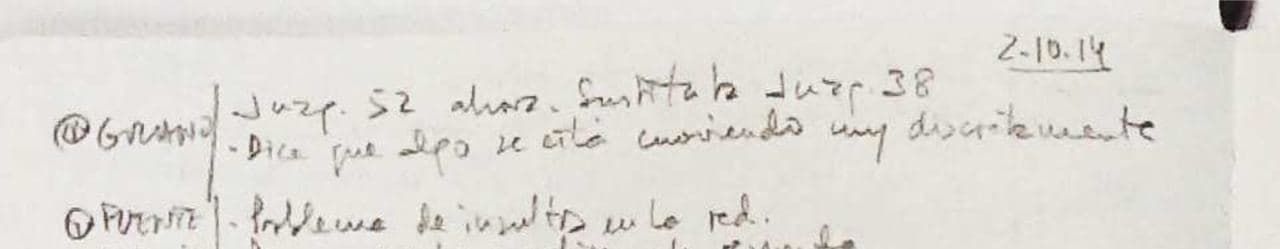 2-10-14
Juzg. 52 ahora. Sustituta Juzg. 38
- Dice que algo se está moviendo muy discretamente
FUENTE - Problema de insultos en la red.